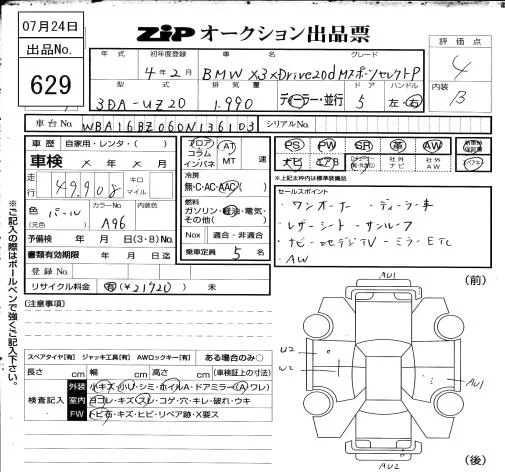 07月24日
出品No.
629
ZiP オークション出品票
年式 初年度登録 車名 グレード
4年2月 BMW X3 xDrive20d MスポーツセレクトP
型式 排気量 ドア ハンドル
3DA-UZ20 1,990 ディーラー・並行 5 左・右
評価点
4
内装
B
車台No. WBA16BZ060N136103 シリアルNo.
車歴 自家用・レンタ・( )
車検 × 年 × 月 × 日
走行 49,908 キロ マイル
色(元色) パール カラーNo. A96 内装色
予備検 年 月 日(3・8)No.
書類有効期限 年 月 日迄
登録No.
リサイクル料金 有(¥21720) 未
フロア コラム インパネ AT MT 速
冷房
無・C・AC・AAC( )
燃料
ガソリン・軽油・電気・その他( )
Nox 適合・非適合
乗車定員 5 名
PS PW SR 革 AW
ナビ エアB 社外ナビ 社外AW
*上記太枠内は標準装備品
セールスポイント
・ワンオーナー ・ディーラー車
・レザーシート ・サンルーフ
・ナビ・地デジTV ・ミラーETC
・AW
(注意事項)
※ご記入の際はボールペンで強くご記入下さい。
スペアタイヤ[有] ジャッキ工具[有] AWロックキー[有] ある場合のみ○
長さ cm 幅 cm 高さ cm (車検証上の寸法)
検査記入
外装 小キズ・小U・シミ・ホイルA・ドアミラー(A ワレ)
室内 ヨゴレ・キズ・スレ・コゲ・穴・キレ・破れ・ウキ
FW トビ石・キズ・ヒビ・リペア跡・X要ス
(前)
AU1
U2
U2
AU1
AU2
(後)